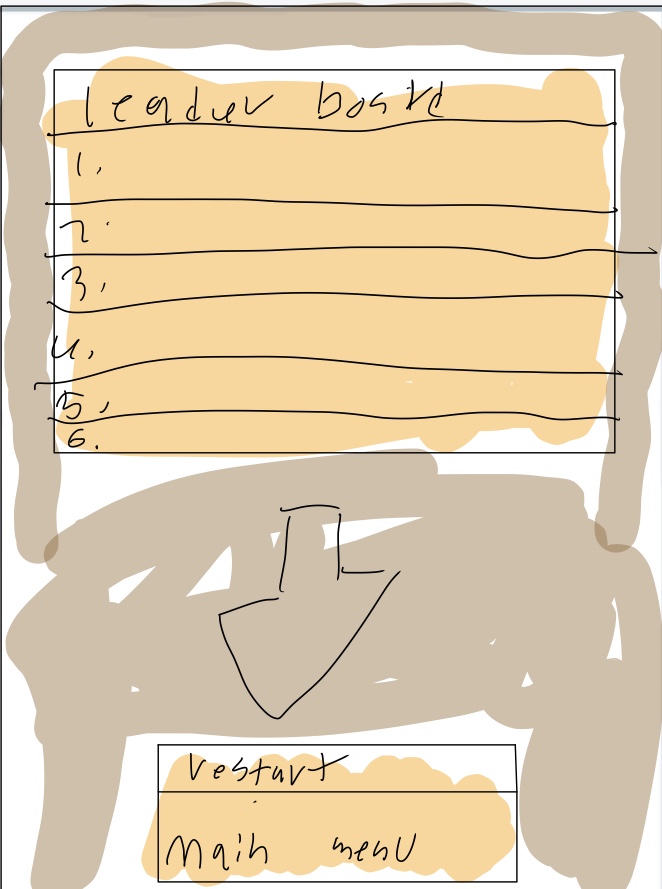 leader board
1.
2.
3.
4.
5.
6.
restart
main menu